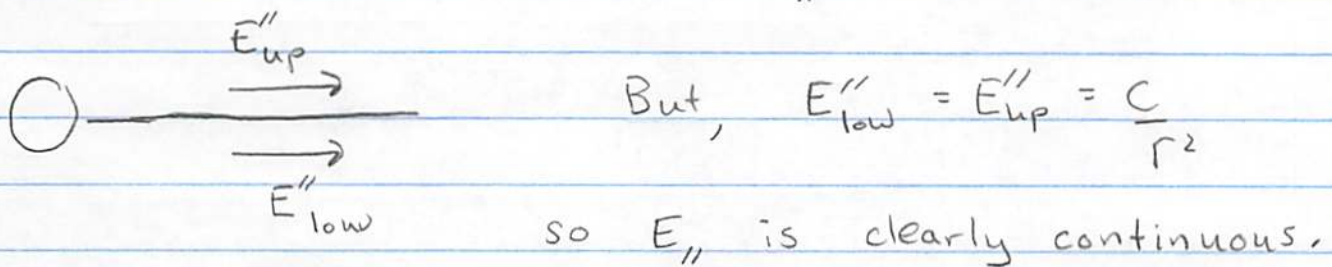 E″up
But, E″low = E″up = C/r²
E″low
so E″ is clearly continuous.